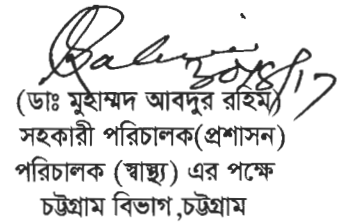 ৩০/৪/১৭
(ডাঃ মুহাম্মদ আবদুর রহিম)
সহকারী পরিচালক(প্রশাসন)
পরিচালক (স্বাস্থ্য) এর পক্ষে
চট্টগ্রাম বিভাগ,চট্টগ্রাম